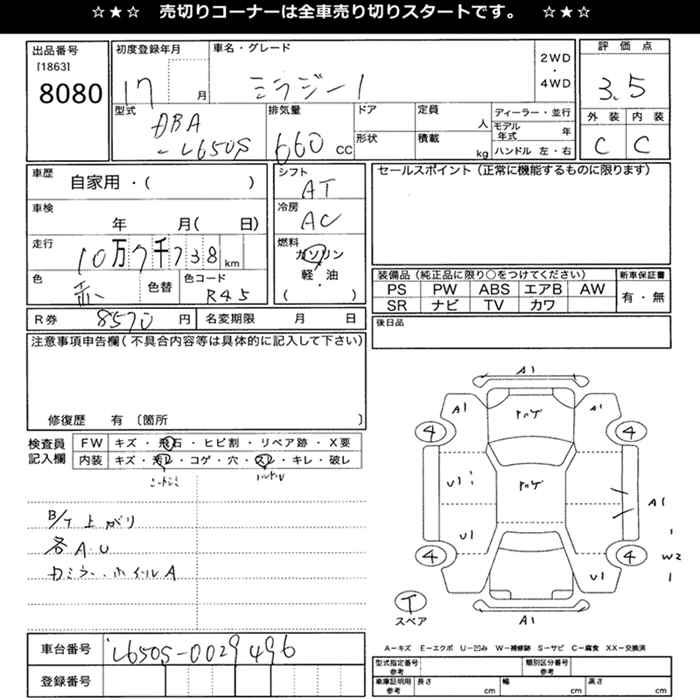 ☆★☆ 売切りコーナーは全車売り切りスタートです。 ☆★☆
出品番号
[1863]
8080
初度登録年月
17 月
車名・グレード
ミラジーノ
2WD
・
4WD
評価点
3.5
外装 内装
C C
型式
DBA
-L650S
排気量
660 CC
ドア
形状
定員
人
積載
kg
ディーラー・並行
モデル年式 年
ハンドル 左・右
車歴
自家用・( )
車検
年 月( 日)
走行
10万7千738 km
色
赤
色替
色コード
R45
シフト
AT
冷房
AC
燃料
ガソリン
軽・油
( )
セールスポイント(正常に機能するものに限ります)
装備品(純正品に限り○をつけてください)
PS PW ABS エアB AW
SR ナビ TV カワ
新車保証書
有・無
R券 8570 円
名変期限 月 日
後日品
注意事項申告欄(不具合内容等は具体的に記入して下さい)
修復歴 有 〔箇所 〕
検査員
記入欄
FW キズ・飛石・ヒビ割・リペア跡・X要
内装 キズ・汚レ・コゲ・穴・スレ・キレ・破レ
シートシミ
ハンドル
B/T上がり
各A.U
カミラー・ホイルA
A1
A1
A1
4
4
U1
U1
A1
1
W2
1
4
4
U1
T
スペア
A1
A−キズ E−エクボ U−凹み W−補修跡 S−サビ C−腐食 XX−交換済
車台番号
L650S-0029496
登録番号
型式指定番号
参考
類別区分番号
参考
車庫証明用
参考
長さ cm
幅 cm
高さ cm